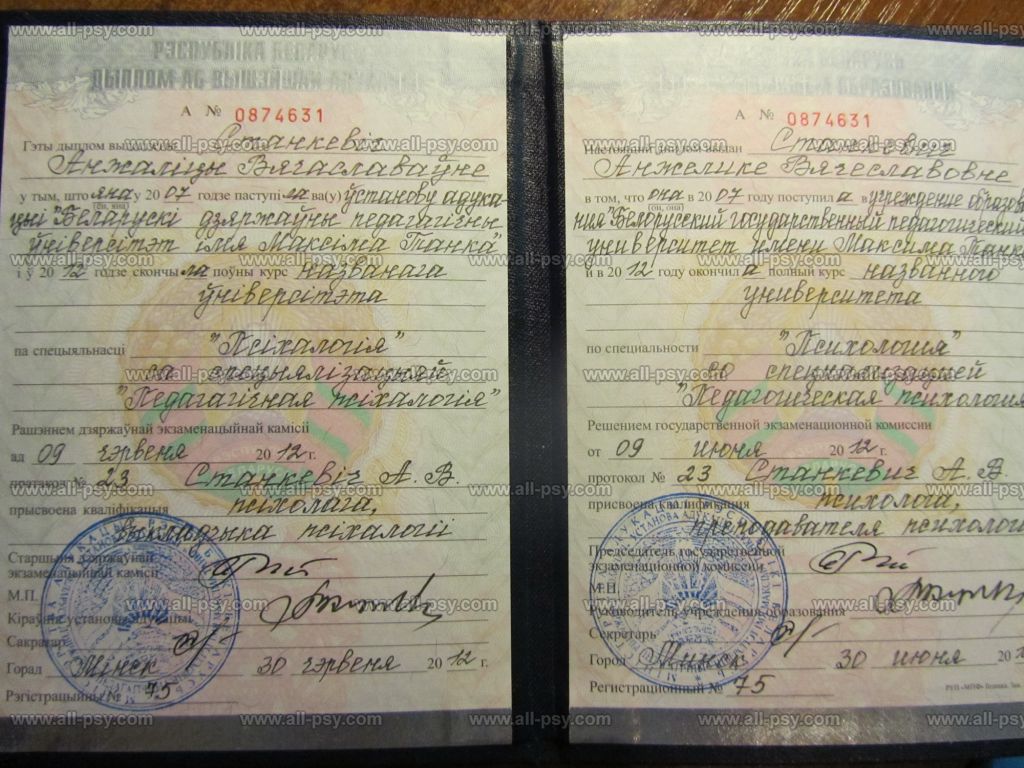 РЭСПУБЛІКА БЕЛАРУСЬ
ДЫПЛОМ АБ ВЫШЭЙШАЙ АДУКАЦЫІ
А № 0874631
Гэты дыплом выдадзены Станкевіч
Анжаліцы Вячаславаўне
у тым, што яна у 2007 годзе паступіла ва(у) ўстанову адука-
(ён, яна)
цыі "Беларускі дзяржаўны педагагічны
ўніверсітэт імя Максіма Танка"
і ў 2012 годзе скончыла поўны курс названага
ўніверсітэта
па спецыяльнасці "Псіхалогія"
са спецыялізацыяй
"Педагагічная псіхалогія"
Рашэннем дзяржаўнай экзаменацыйнай камісіі
ад 09 чэрвеня 2012 г.
пратакол № 23 Станкевіч А. В.
прысвоена кваліфікацыя псіхолага,
выкладчыка псіхалогіі
Старшыня дзяржаўнай
экзаменацыйнай камісіі
М.П.
Кіраўнік установы адукацыі
Сакратар
Горад Мінск 30 чэрвеня 2012 г.
Рэгістрацыйны № 75
А № 0874631
Настоящий диплом выдан Станкевич
Анжелике Вячеславовне
в том, что она в 2007 году поступила в учреждение образова-
(он, она)
ния "Белорусский государственный педагогический
университет имени Максима Танка
и в 2012 году окончила полный курс названного
университета
по специальности "Психология"
со специализацией
"Педагогическая психология
Решением государственной экзаменационной комиссии
от 09 июня 2012 г.
протокол № 23 Станкевич А. В.
присвоена квалификация психолога,
преподавателя психологии
Председатель государственной
экзаменационной комиссии
М.П.
Руководитель учреждения образования
Секретарь
Город Минск 30 июня 201
Регистрационный № 75
www.all-psy.com